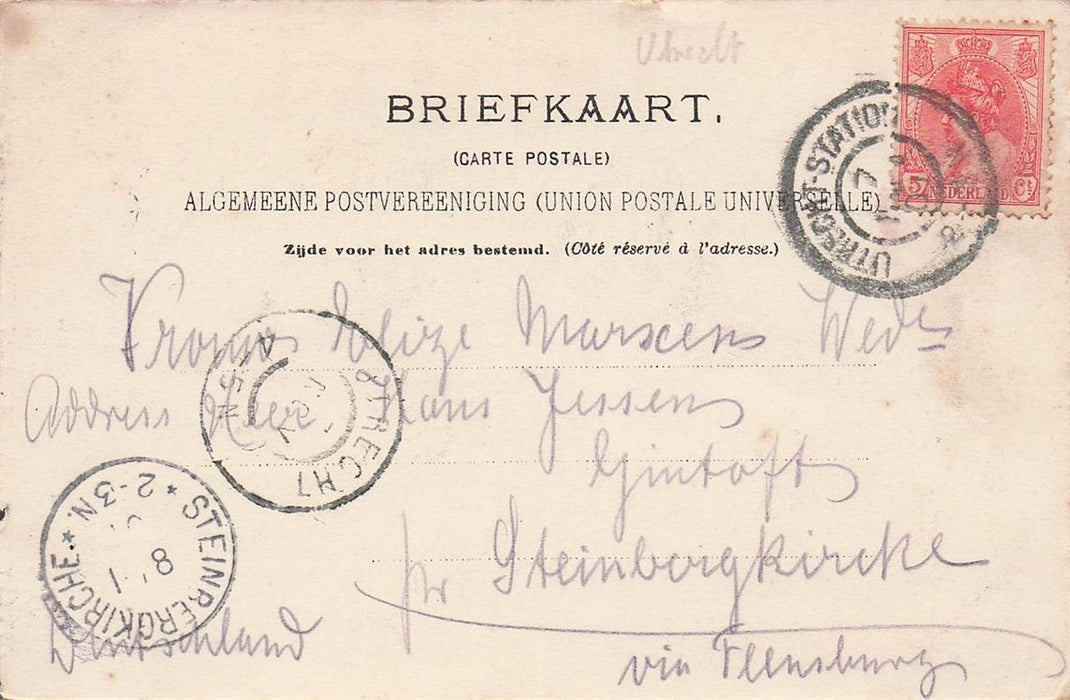 Utrecht
BRIEFKAART.
(CARTE POSTALE)
ALGEMEENE POSTVEREENIGING (UNION POSTALE UNIVERSELLE)
Zijde voor het adres bestemd. (Côté réservé à l'adresse.)
5 NEDERLAND Ct
UTRECHT-STATION
Elize Marxsens Wede
Address Heer Hans Jessen
Gintoft
pr Steinbergkirche
via Flensburg
Deutschland
UTRECHT
4-5N
STEINBERGKIRCHE.
* 2-3N. *
8